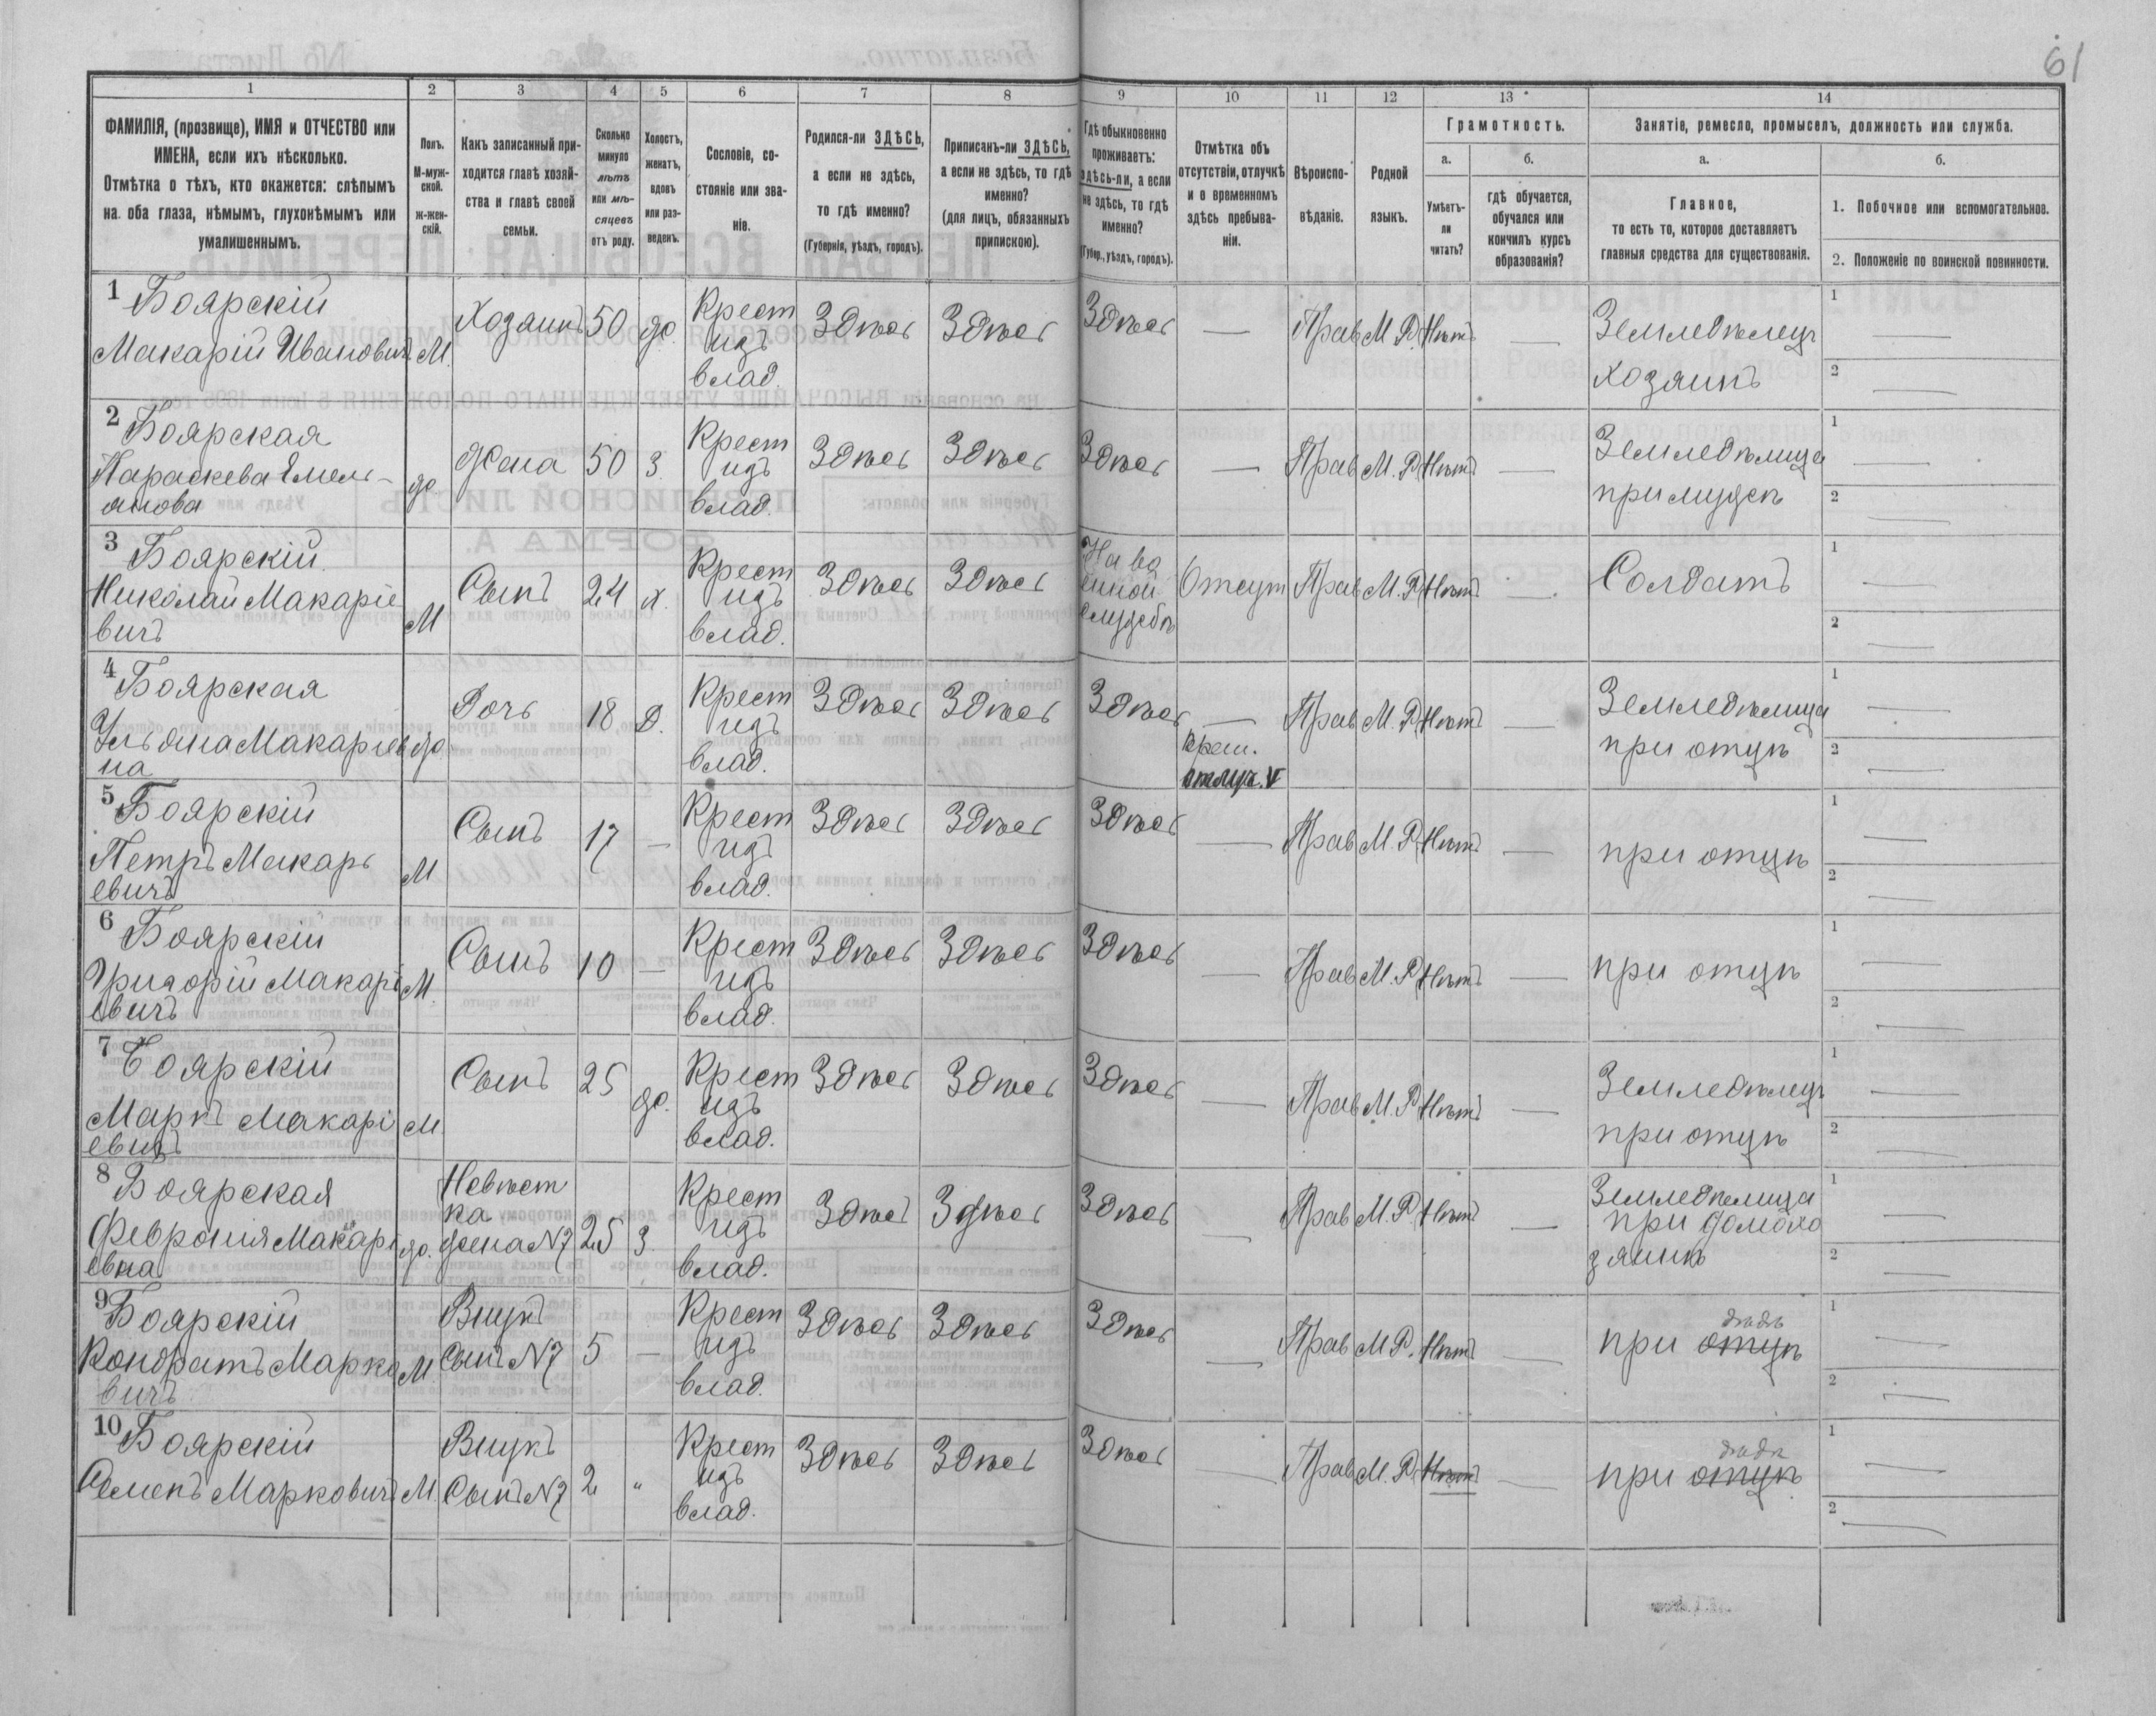 61
1 2 3 4 5 6 7 8 9 10 11 12 13 14
ФАМИЛІЯ, (прозвище), ИМЯ и ОТЧЕСТВО или
ИМЕНА, если ихъ нѣсколько.
Отмѣтка о тѣхъ, кто окажется: слѣпымъ
на оба глаза, нѣмымъ, глухонѣмымъ или
умалишеннымъ.
Полъ.
М-муж-
ской.
ж-жен-
скій.
Какъ записанный при-
ходится главѣ хозяй-
ства и главѣ своей
семьи.
Сколько
минуло
лѣтъ
или мѣ-
сяцевъ
отъ роду.
Холостъ,
женатъ,
вдовъ
или раз-
веденъ.
Сословіе, со-
стояніе или зва-
ніе.
Родился-ли ЗДѢСЬ,
а если не здѣсь,
то гдѣ именно?
(Губернія, уѣздъ, городъ).
Приписанъ-ли ЗДѢСЬ,
а если не здѣсь, то гдѣ
именно?
(для лицъ, обязанныхъ
припискою).
Гдѣ обыкновенно
проживаетъ:
здѣсь-ли, а если
не здѣсь, то гдѣ
именно?
(Губер., уѣздъ, городъ).
Отмѣтка объ
отсутствіи, отлучкѣ
и о временномъ
здѣсь пребыва-
ніи.
Вѣроиспо-
вѣданіе.
Родной
языкъ.
Грамотность.
а.
Умѣетъ-
ли
читать?
б.
гдѣ обучается,
обучался или
кончилъ курсъ
образованія?
Занятіе, ремесло, промыселъ, должность или служба.
а.
Главное,
то есть то, которое доставляетъ
главныя средства для существованія.
б.
1. Побочное или вспомогательное.
2. Положеніе по воинской повинности.
1 Боярскій
Макарій Ивановичъ М.
Хозяинъ 50 ж.
Крест
изъ
влад.
Здѣсь Здѣсь Здѣсь — Прав М.Р. Нѣтъ —
Земледѣлецъ
хозяинъ
1 —
2 —
2 Боярская
Параскева Емель-
янова ж.
Жена 50 З.
Крест
изъ
влад.
Здѣсь Здѣсь Здѣсь — Прав М.Р. Нѣтъ —
Земледѣлица
при мужѣ
1 —
2 —
3 Боярскій
Николай Макаріе
вичъ М
Сынъ 24 х.
Крест
изъ
влад.
Здѣсь Здѣсь
На во
енной
службѣ
Отсут Прав М.Р. Нѣтъ —
Солдатъ
1 —
2 —
4 Боярская
Ульяна Макаріев
на ж.
Дочь 18 Д.
Крест
изъ
влад.
Здѣсь Здѣсь Здѣсь —
врем.
отлуч. V
Прав М.Р. Нѣтъ —
Земледѣлица
при отцѣ
1 —
2 —
5 Боярскій
Петръ Макарь
евичъ М
Сынъ 17 —
Крест
изъ
влад.
Здѣсь Здѣсь Здѣсь — Прав М.Р. Нѣтъ —
при отцѣ
1 —
2 —
6 Боярскій
Григорій Макарі
евичъ М.
Сынъ 10 —
Крест
изъ
влад.
Здѣсь Здѣсь Здѣсь — Прав М.Р. Нѣтъ —
при отцѣ
1 —
2 —
7 Боярскій
Маркъ Макарі
евичъ М
Сынъ 25 ж.
Крест
изъ
влад.
Здѣсь Здѣсь Здѣсь — Прав М.Р. Нѣтъ —
Земледѣлецъ
при отцѣ
1 —
2 —
8 Боярская
Февронія Макарі
евна ж.
Невѣст
ка
жена N7 25 З.
Крест
изъ
влад.
Здѣсь Здѣсь Здѣсь — Прав М.Р. Нѣтъ —
Земледѣлица
при домохо
зяинѣ
1 —
2 —
9 Боярскій
Кондратъ Марко
вичъ М
Внукъ
Сынъ N7 5 —
Крест
изъ
влад.
Здѣсь Здѣсь Здѣсь — Прав М.Р. Нѣтъ —
дѣдѣ
при отцѣ
1 —
2 —
10 Боярскій
Семенъ Марковичъ М.
Внукъ
Сынъ N7 2 "
Крест
изъ
влад.
Здѣсь Здѣсь Здѣсь — Прав М.Р. Нѣтъ —
дѣдѣ
при отцѣ
1 —
2 —